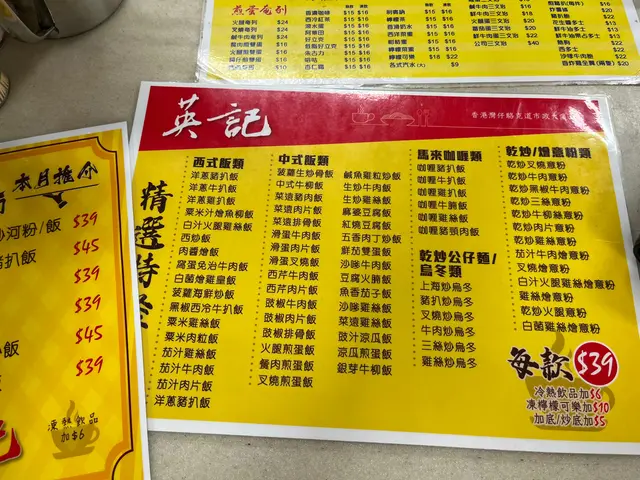 煎蛋奄列
火腿奄列 $24
叉燒奄列 $24
鮮牛肉奄列 $24
英記
香港灣仔駱克道市政大廈
精選特餐
西式飯類
洋蔥豬扒飯
洋蔥牛扒飯
洋蔥雞扒飯
粟米汁燴魚柳飯
白汁火腿雞絲飯
西炒飯
肉醬燴飯
窩蛋免治牛肉飯
白菌燴雞皇飯
菠蘿海鮮炒飯
黑椒西冷牛扒飯
粟米雞絲飯
粟米肉粒飯
茄汁雞絲飯
茄汁牛肉飯
茄汁肉片飯
洋蔥豬扒飯
中式飯類
菠蘿生炒骨飯
中式牛柳飯
菜遠牛肉飯
菜遠肉片飯
菜遠排骨飯
滑蛋牛肉飯
滑蛋肉片飯
滑蛋叉燒飯
西芹牛肉飯
西芹肉片飯
豉椒牛肉飯
豉椒肉片飯
豉椒排骨飯
火腿煎蛋飯
餐肉煎蛋飯
叉燒煎蛋飯
鹹魚雞粒炒飯
生炒牛肉飯
生炒雞絲飯
麻婆豆腐飯
紅燒豆腐飯
五香肉丁炒飯
鮮茄雙蛋飯
沙嗲牛肉飯
豆腐火腩飯
魚香茄子飯
沙嗲雞絲飯
菜遠雞絲飯
豉汁涼瓜飯
涼瓜煎蛋飯
銀芽牛柳飯
馬來咖喱類
咖喱豬扒飯
咖喱牛扒飯
咖喱雞扒飯
咖喱牛腩飯
咖喱雞絲飯
咖喱豬頸肉飯
乾炒公仔麵/
烏冬類
上海炒烏冬
豬扒炒烏冬
叉燒炒烏冬
牛肉炒烏冬
三絲炒烏冬
雞絲炒烏冬
乾炒/燴意粉類
乾炒叉燒意粉
乾炒牛肉意粉
乾炒黑椒牛肉意粉
乾炒三絲意粉
乾炒牛柳絲意粉
乾炒肉片意粉
乾炒雞絲意粉
茄汁牛肉燴意粉
叉燒燴意粉
白汁火腿雞絲燴意粉
雞絲燴意粉
乾炒火腿意粉
白菌雞絲燴意粉
每款 $39
冷熱飲品加$6
凍檸檬可樂加$10
加底/炒底加$5
本月推介
炒河粉/飯 $39
豬扒飯 $45
$39
$39
飯 $45
$39
凍熱飲品
加$6